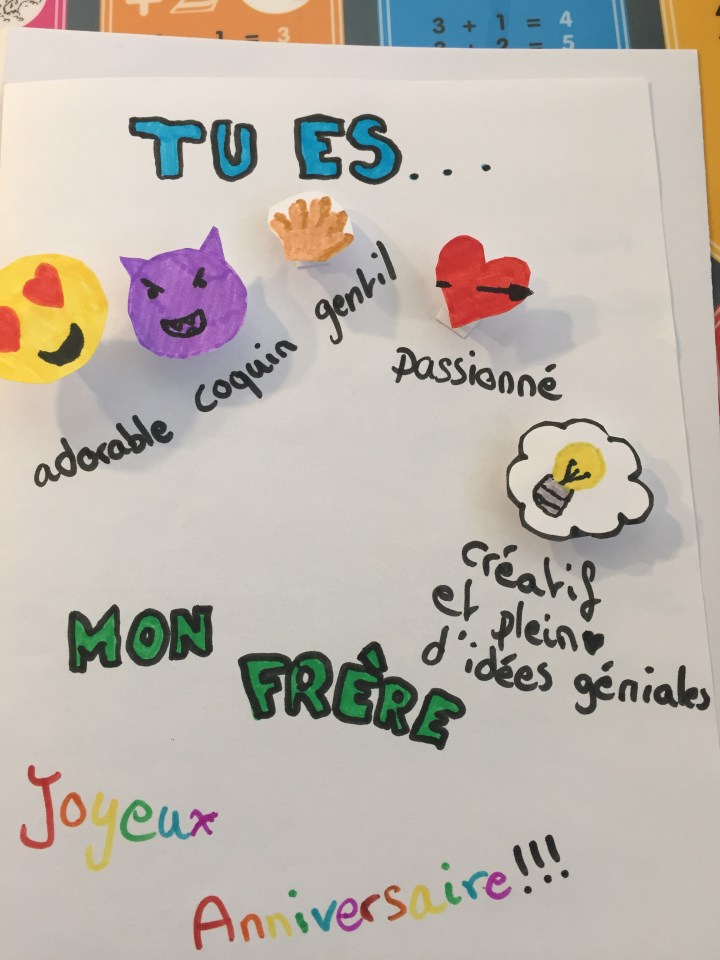 +2
1 = 3
3 + 1 = 4
3 + 2 = 5
TU ES...
adorable
coquin
gentil
passionné
créatif
et plein
d'idées géniales
MON
FRÈRE
Joyeux
Anniversaire!!!